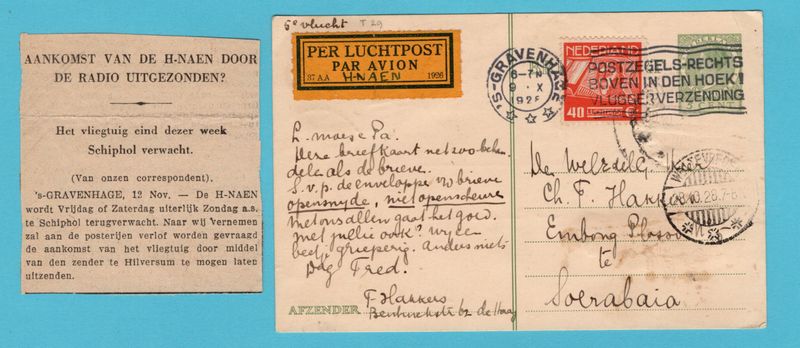 AANKOMST VAN DE H-NAEN DOOR
DE RADIO UITGEZONDEN?
Het vliegtuig eind dezer week
Schiphol verwacht.
(Van onzen correspondent).
's-GRAVENHAGE, 12 Nov. — De H-NAEN
wordt Vrijdag of Zaterdag uiterlijk Zondag a.s.
te Schiphol terugverwacht. Naar wij vernemen
zal aan de posterijen verlof worden gevraagd
de aankomst van het vliegtuig door middel
van den zender te Hilversum te mogen laten
uitzenden.
5e vlucht T 29
PER LUCHTPOST
PAR AVION
37 A A H-NAEN 1926
'S-GRAVENHAGE
6-7N
9 X
192
NEDERLAND
40 C
POSTZEGELS-RECHTS
BOVEN IN DEN HOEK!
VLUGGER VERZENDING
L. moes e Pa.
Deze briefkaart net zoo behan
delen als de brieve.
S.v.p. de enveloppe v/d brieve
opensnyde, niet openscheure
met ons allen gaat het goed.
met jullie ook?
beetje grieperig. Anders niets
Dag Fred.
AFZENDER
F. Hakkers
62 de Haag
Den Weledelg Heer
Ch. F. Hakkers
Embong Plosso
te
Soerabaia
WELTEVREDEN
28.10.26.7-8